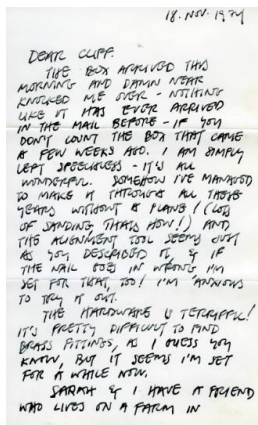 18. NOV. 1974
DEAR CLIFF.
THE BOX ARRIVED THIS
MORNING AND DAMN NEAR
KNOCKED ME OVER - NOTHING
LIKE IT HAS EVER ARRIVED
IN THE MAIL BEFORE - IF YOU
DON'T COUNT THE BOX THAT CAME
A FEW WEEKS AGO. I AM SIMPLY
LEFT SPEECHLESS - IT'S ALL
WONDERFUL. SOMEHOW I'VE MANAGED
TO MAKE IT THROUGH ALL THESE
YEARS WITHOUT A PLANE! (LOTS
OF SANDING, THATS HOW!) AND
THE ALIGNMENT TOOL SEEMS JUST
AS YOU DESCRIBED IT, & IF
THE NAIL GOES IN WRONG I'M
SET FOR THAT, TOO! I'M ANXIOUS
TO TRY IT OUT.
THE HARDWARE IS TERRIFIC!
IT'S PRETTY DIFFICULT TO FIND
BRASS FITTINGS, AS I GUESS YOU
KNOW, BUT IT SEEMS I'M SET
FOR A WHILE NOW.
SARAH & I HAVE A FRIEND
WHO LIVES ON A FARM IN